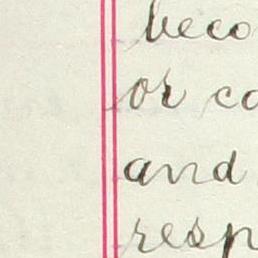 beco
or co
and
resp